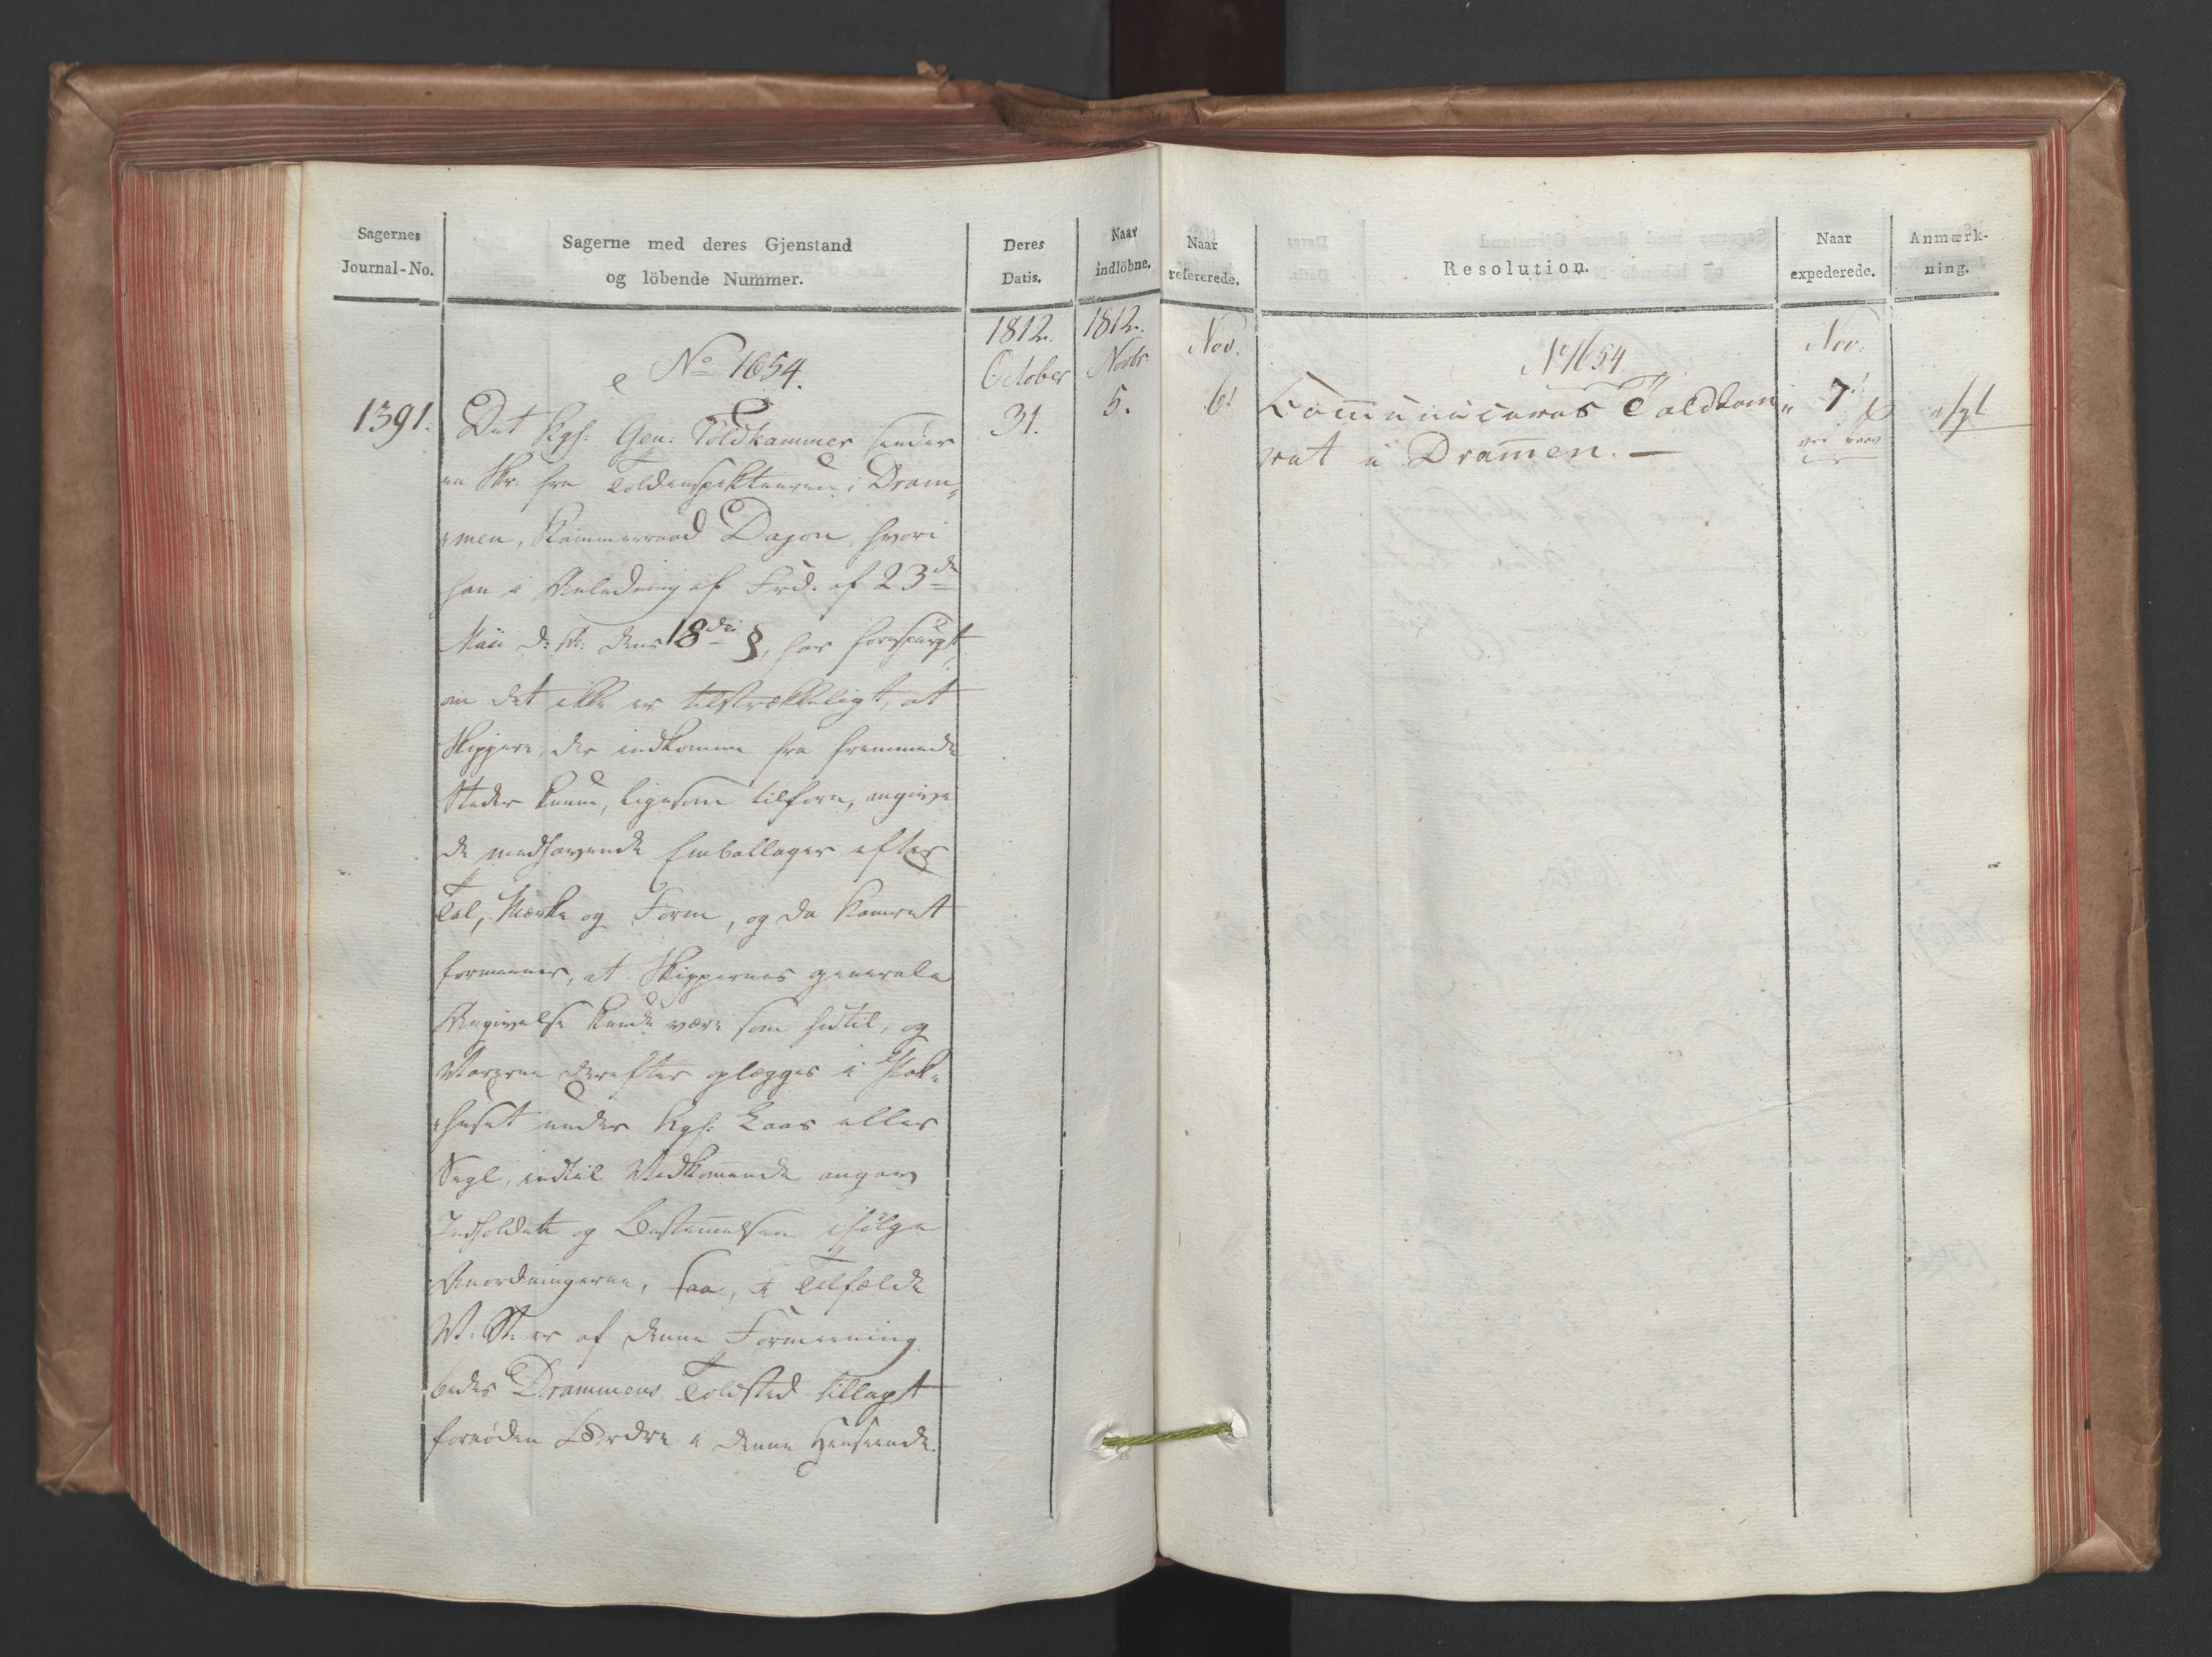 Sagernes
Journal-No.
Sagerne med deres Gjenstand
og löbende Nummer.
Deres
Datis.
Naar
indlöbne.
1812.
October
31.
1812.
Novbr
5.
No 1654.
1391.
Det Kgl: Gen: Toldkammer sender
en Skr: fra Toldinspekteuren i Dram„
„men, Kammerraad Dajon, hvori
han i Anledning af Frd. af 23de
Maii d: A: dens 18de §, har forespurgt
om det ikke er tilstrækkeligt, at
Skippere, der indkomme fra fremmede
Steder kunne, ligesom tilforn, angive
de medhavende Emballager efter
Tal, Mærke og Form, og da Kamret
formeener, at Skippernes generale
Angivelse kunde være som hidtil, og
Varerne derefter oplægges i Pak„
„huset under Kgl: Laas eller
Segl, indtil Vedkommende angav
Indholdet og Bestemmelsen ifølge
Anordningerne, saa, i Tilfælde
af denne Formeening
bedes Drammens Toldsted tillagt
fornøden Ordre i denne Henseende.
Naar
refererede.
Resolution.
Naar
expederede.
Anmærk-
ning.
Nov.
6!
No 1654
Communiceres Toldkam„
ret i Drammen. —
Nov:
7!
afgl